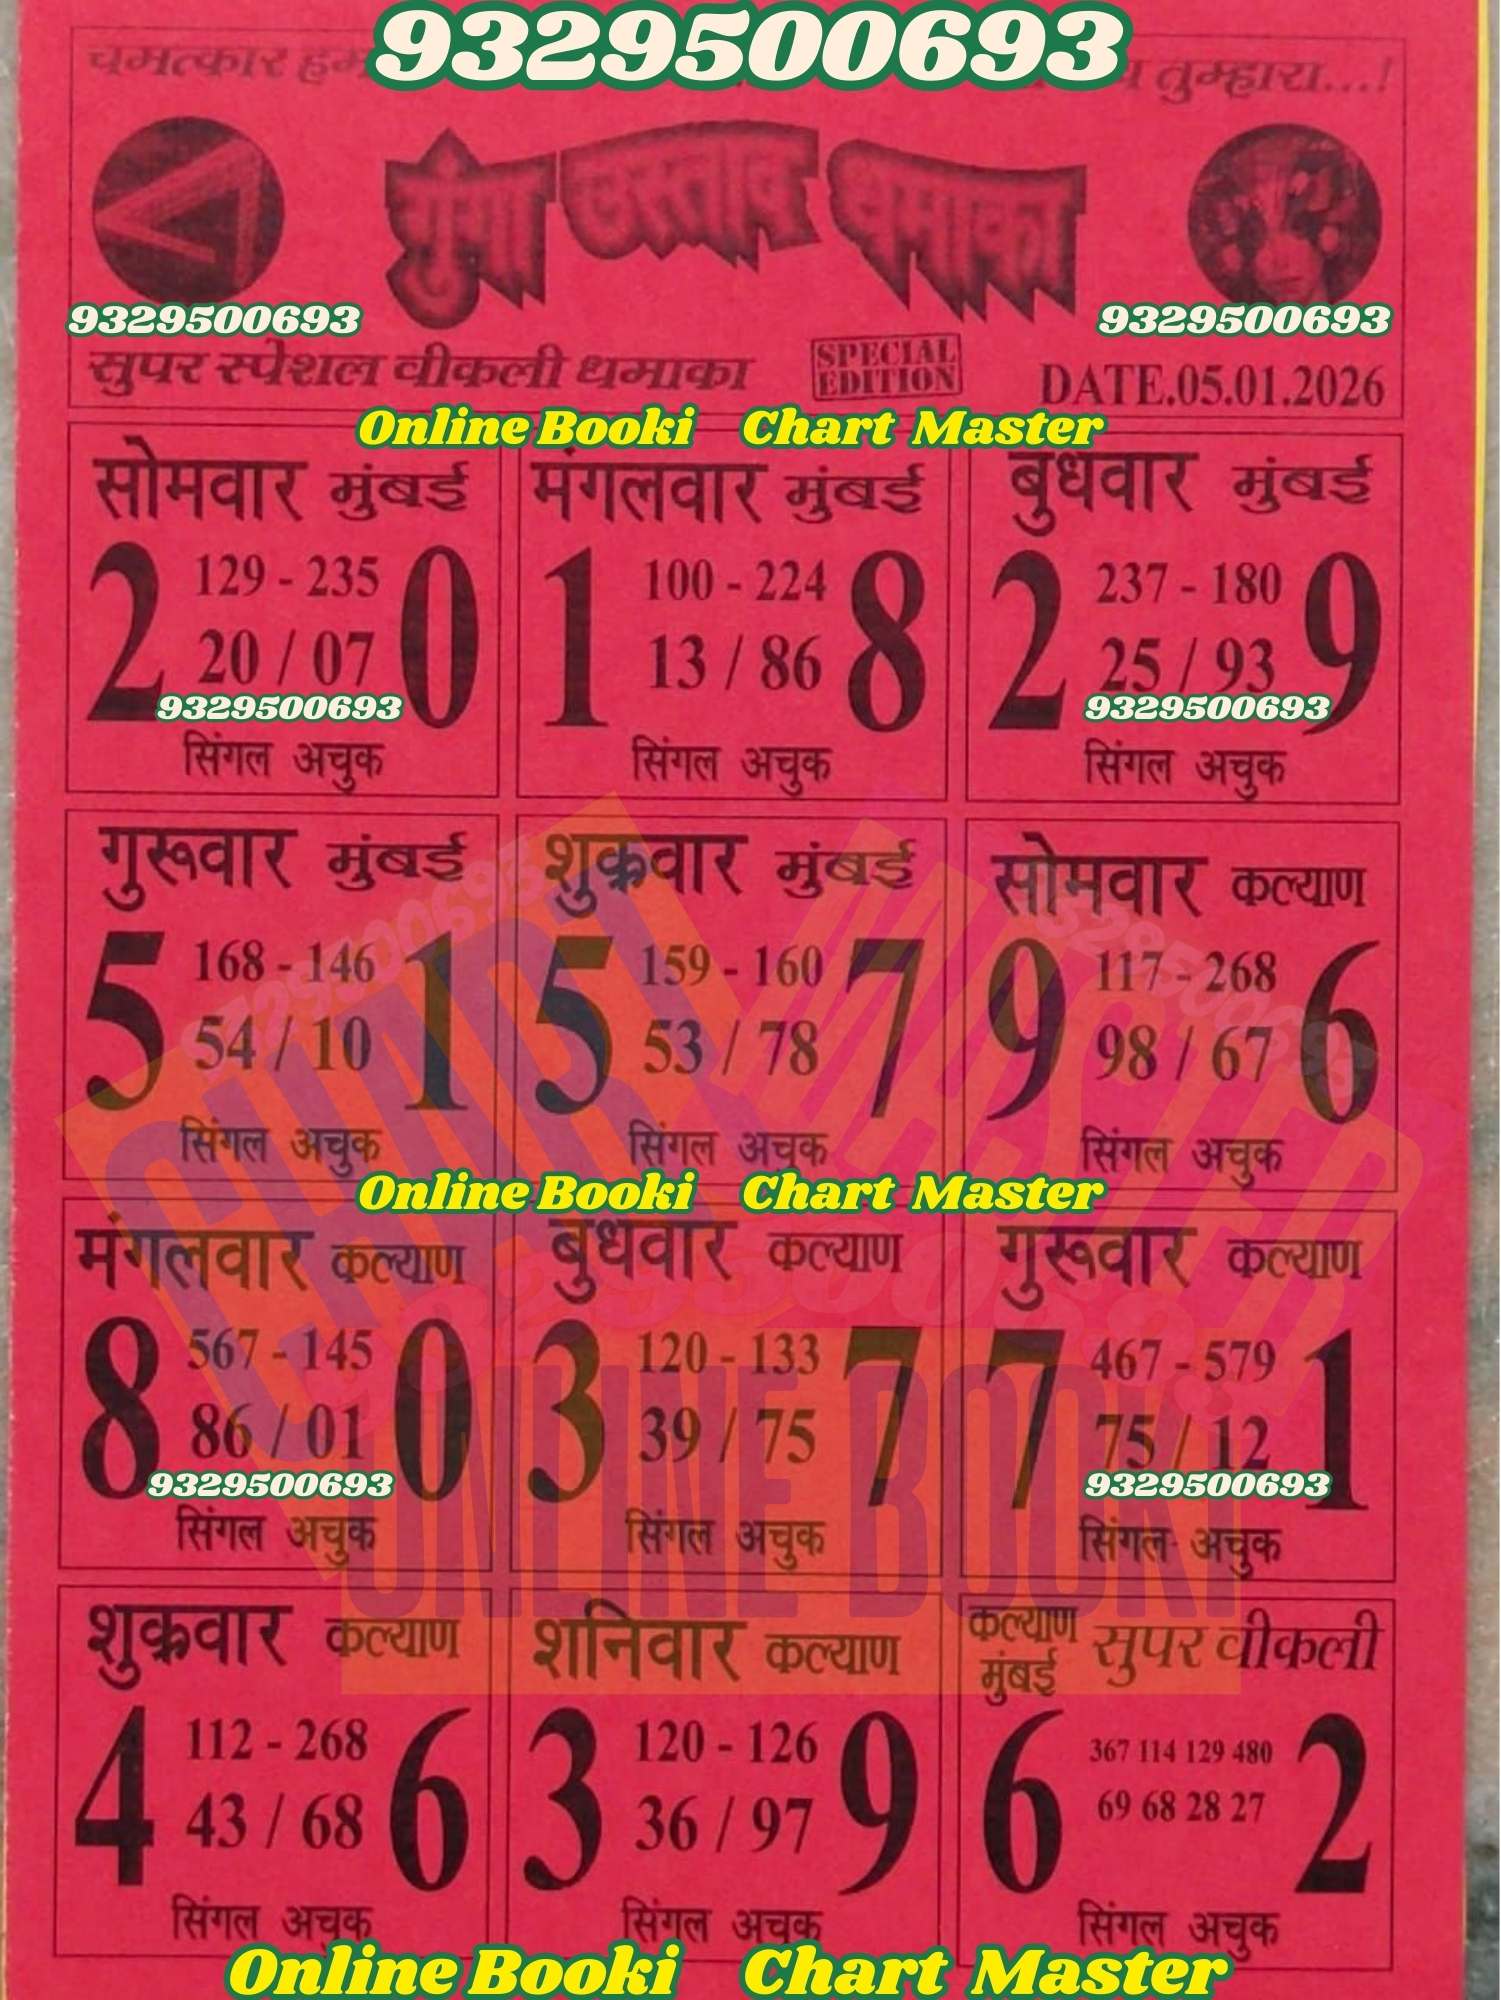 9329500693
चमत्कार हम तुम्हारा...!
गुंगा उस्ताद धमाका
9329500693 9329500693
सुपर स्पेशल वीकली धमाका SPECIAL EDITION DATE.05.01.2026
Online Booki Chart Master
सोमवार मुंबई
2 129 - 235 0
20 / 07
9329500693
सिंगल अचुक
मंगलवार मुंबई
1 100 - 224 8
13 / 86
सिंगल अचुक
बुधवार मुंबई
2 237 - 180 9
25 / 93
9329500693
सिंगल अचुक
गुरूवार मुंबई
5 168 - 146 1
54 / 10
सिंगल अचुक
शुक्रवार मुंबई
5 159 - 160 7
53 / 78
सिंगल अचुक
सोमवार कल्याण
9 117 - 268 6
98 / 67
सिंगल अचुक
Online Booki Chart Master
मंगलवार कल्याण
8 567 - 145 0
86 / 01
9329500693
सिंगल अचुक
बुधवार कल्याण
3 120 - 133 7
39 / 75
सिंगल अचुक
गुरूवार कल्याण
7 467 - 579 1
75 / 12
9329500693
सिंगल अचुक
CHART MASTER
ONLINE BOOKI
शुक्रवार कल्याण
4 112 - 268 6
43 / 68
सिंगल अचुक
शनिवार कल्याण
3 120 - 126 9
36 / 97
सिंगल अचुक
कल्याण मुंबई सुपर वीकली
6 367 114 129 480 2
69 68 28 27
सिंगल अचुक
Online Booki Chart Master